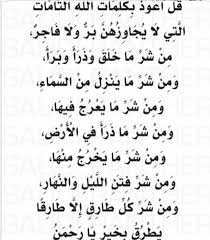 قُلْ أَعُوذُ بِكَلِمَاتِ اللَّهِ التَّامَّاتِ
الَّتِي لَا يُجَاوِزُهُنَّ بَرٌّ وَلَا فَاجِرٌ،
مِنْ شَرِّ مَا خَلَقَ وَذَرَأَ وَبَرَأَ،
وَمِنْ شَرِّ مَا يَنْزِلُ مِنَ السَّمَاءِ،
وَمِنْ شَرِّ مَا يَعْرُجُ فِيهَا،
وَمِنْ شَرِّ مَا ذَرَأَ فِي الْأَرْضِ،
وَمِنْ شَرِّ مَا يَخْرُجُ مِنْهَا،
وَمِنْ شَرِّ فِتَنِ اللَّيْلِ وَالنَّهَارِ،
وَمِنْ شَرِّ كُلِّ طَارِقٍ إِلَّا طَارِقًا
يَطْرُقُ بِخَيْرٍ يَا رَحْمَنُ